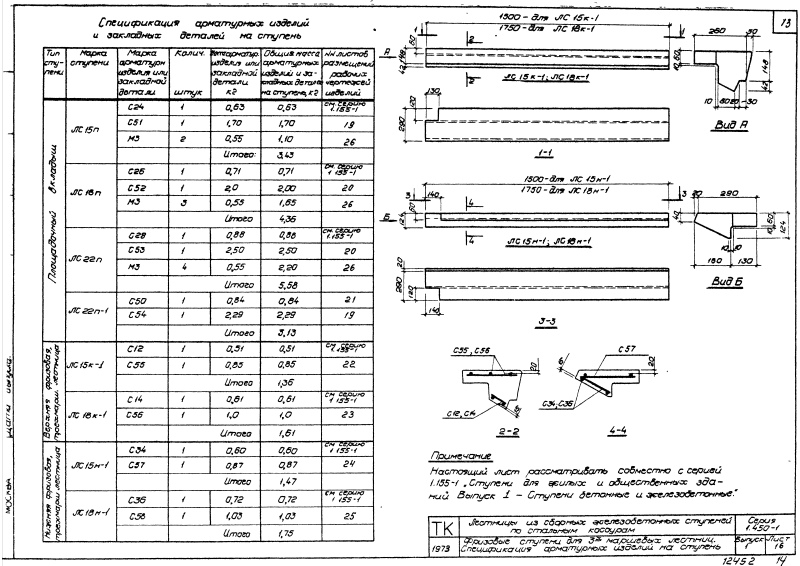 13
Спецификация арматурных изделий
и закладных деталей на ступень
Тип ступени
Марка ступени
Марка арматурн изделия или закладной детали
Колич. штук
изделия или закладной детали кг
Общая масса арматурных изделий и закладных деталей на ступень, кг
NN листов размещений рабочих чертежей изделий
Площадочный вкладыш
ЛС 15п
С24 1 0,63 0,63 см. серию 1.155-1
С51 1 1,70 1,70 19
М3 2 0,55 1,10 26
Итого: 3,43
ЛС 18п
С26 1 0,71 0,71 см. серию 1.155-1
С52 1 2,0 2,00 20
М3 3 0,55 1,65 26
Итого 4,36
ЛС 22п
С28 1 0,88 0,88 см. серию 1.155-1
С53 1 2,50 2,50 20
М3 4 0,55 2,20 26
Итого 5,58
ЛС 22п-1
С50 1 0,84 0,84 21
С54 1 2,29 2,29 19
Итого 3,13
Верхняя фризовая, трехмарш. лестница
ЛС15к-1
С12 1 0,51 0,51 см. серию 1.155-1
С55 1 0,85 0,85 22
Итого 1,36
ЛС 18к-1
С14 1 0,61 0,61 см. серию 1.155-1
С56 1 1,0 1,0 23
Итого 1,61
Нижняя фризовая, трехмарш лестница
ЛС15н-1
С34 1 0,60 0,60 см. серию 1.155-1
С57 1 0,87 0,87 24
Итого 1,47
ЛС18н-1
С36 1 0,72 0,72 см серию 1.155-1
С58 1 1,03 1,03 25
Итого 1,75
1500-для ЛС 15к-1
1750-для ЛС 18к-1
А
1 1
2 2
60
148
42
ЛС 15к-1; ЛС 18к-1
260 30
60
10
148
42
10 80 20 30
Вид А
130
120
290
1-1
1500-для ЛС 15н-1
1750-для ЛС 18н-1
3 3
140
4 4
Б
60
124
40
ЛС 15н-1; ЛС 18н-1
20 290
60
10
124
10 10
160 130
Вид Б
20
290
120
140
3-3
С55, С56
20
С12, С14
2-2
С57
20
С34, С36
4-4
Примечание
Настоящий лист рассматривать совместно с серией
1.155-1 „Ступени для жилых и общественных зда-
ний Выпуск 1 - Ступени бетонные и железобетонные."
ТК
1973
Лестницы из сборных железобетонных ступеней
по стальным косоурам
Серия
1.450-1
Фризовые ступени для 3х маршевых лестниц.
Спецификация арматурных изделий на ступень
Выпуск 1
Лист 16
12452 14
Москва